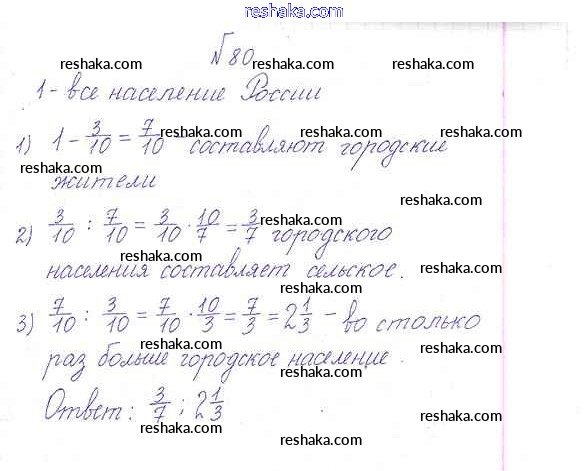 reshaka.com
№80
reshaka.com reshaka.com reshaka.com
1 - все население России
1) 1 - 3/10 = 7/10 составляют городские
reshaka.com reshaka.com
reshaka.com
жители
reshaka.com
2) 3/10 : 7/10 = 3/10 · 10/7 = 3/7 городского
reshaka.com
reshaka.com
населения составляет сельское.
reshaka.com
3) 7/10 : 3/10 = 7/10 · 10/3 = 7/3 = 2 1/3 - во столько
reshaka.com reshaka.com
раз больше городское население.
reshaka.com
reshaka.com
Ответ: 3/7 ; 2 1/3
reshaka.com
reshaka.com reshaka.com